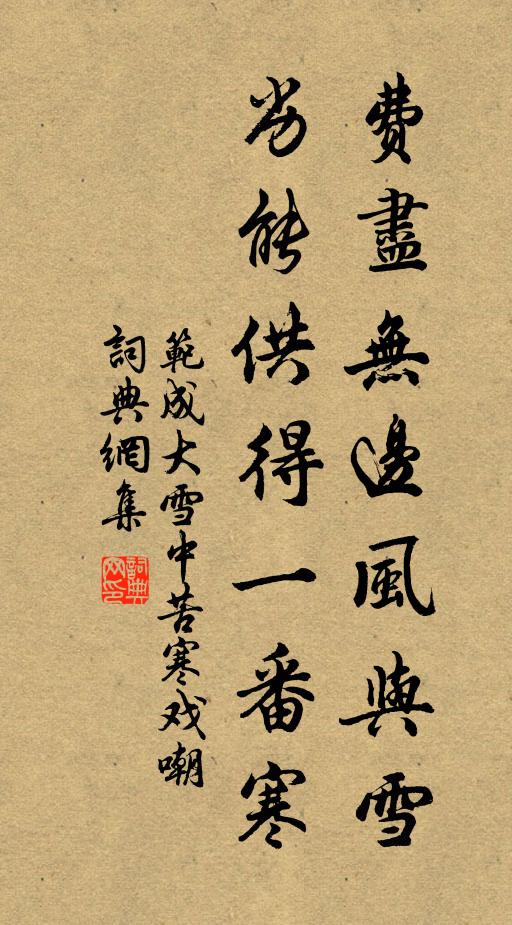 費盡無邊風與雪
劣能供得一番寒
範成大雪中苦寒戏嘲
詞典網集
詞典网印